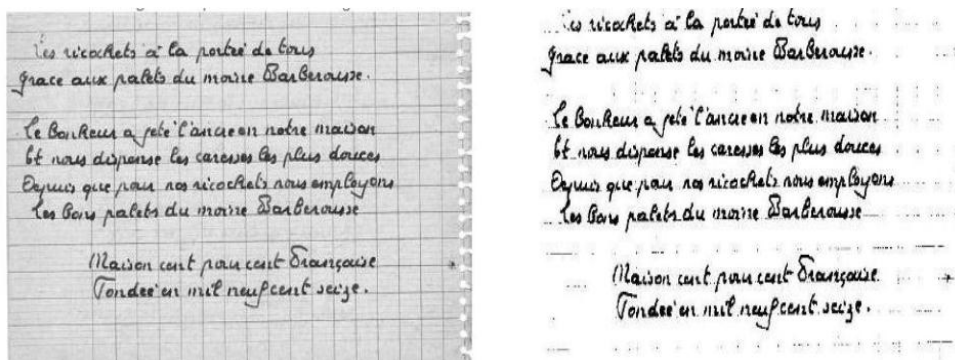 Les ricochets à la portée de tous
grace aux palets du moine Barberousse.
Le Bonheur a jeté l'ancre en notre maison
Et nous dispense les caresses les plus douces
Depuis que pour nos ricochets nous employons
Les bons palets du moine Barberousse
Maison cent pour cent Française
Fondée en mil neuf cent seize.
Les ricochets à la portée de tous
grace aux palets du moine Barberousse.
Le Bonheur a jeté l'ancre en notre maison
Et nous dispense les caresses les plus douces
Depuis que pour nos ricochets nous employons
Les bons palets du moine Barberousse
Maison cent pour cent Française
Fondée en mil neuf cent seize.